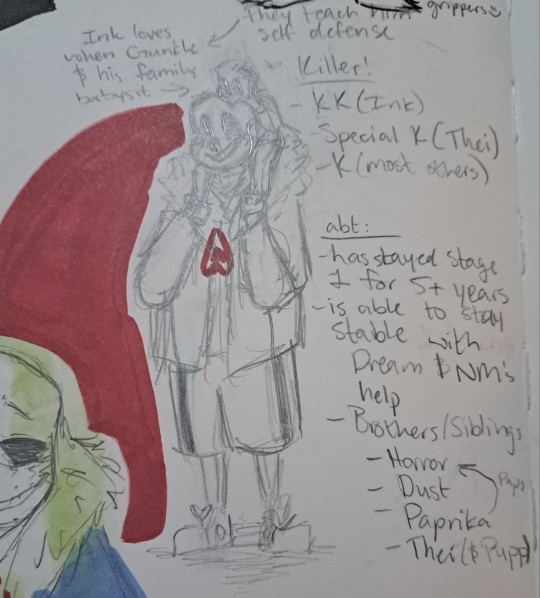 they teach him
grippers
self defense
Ink loves
when Gunkle
& his family
babysit
Killer!
- KK (Ink)
- Special K (Thei)
- K (most others)
abt:
- has stayed stage
1 for 5+ years
- is able to stay
stable with
Dream & NM's
help
- Brothers/Siblings
- Horror
- Dust
Paps
- Paprika
- Thei (& Pupp)